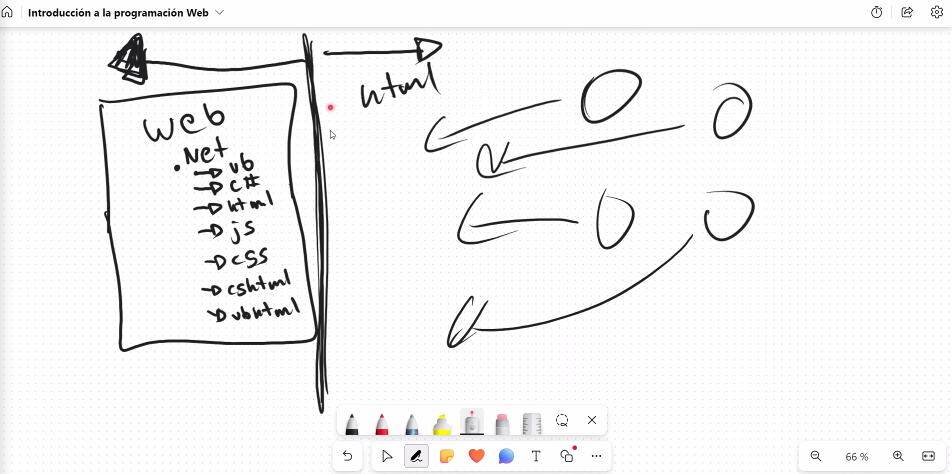 Introducción a la programación Web
html
Web
.Net
vb
c#
html
js
css
cshtml
vbhtml
66 %